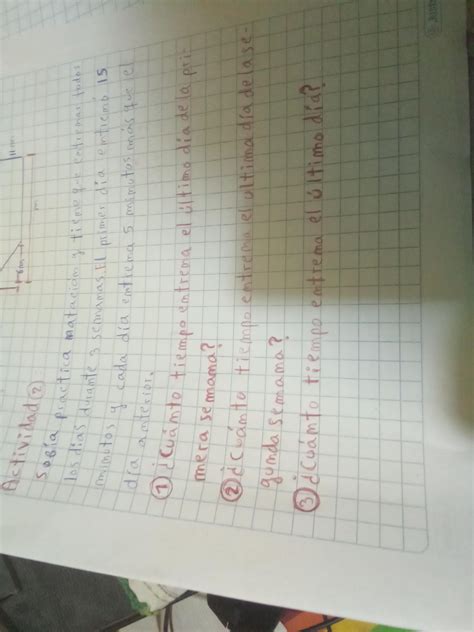 6m
m
11m
Actividad 2
Sobia practica matación y tiene que entrenar todos
los días durante 3 semanas. El primer día entrenó 15
minutos y cada día entrena 5 minutos más que el
día anterior.
1 ¿Cuánto tiempo entrena el último día de la pri-
mera semana?
2 ¿Cuánto tiempo entrena el ultima día de la se-
gunda semana?
3 ¿Cuánto tiempo entrena el último día?